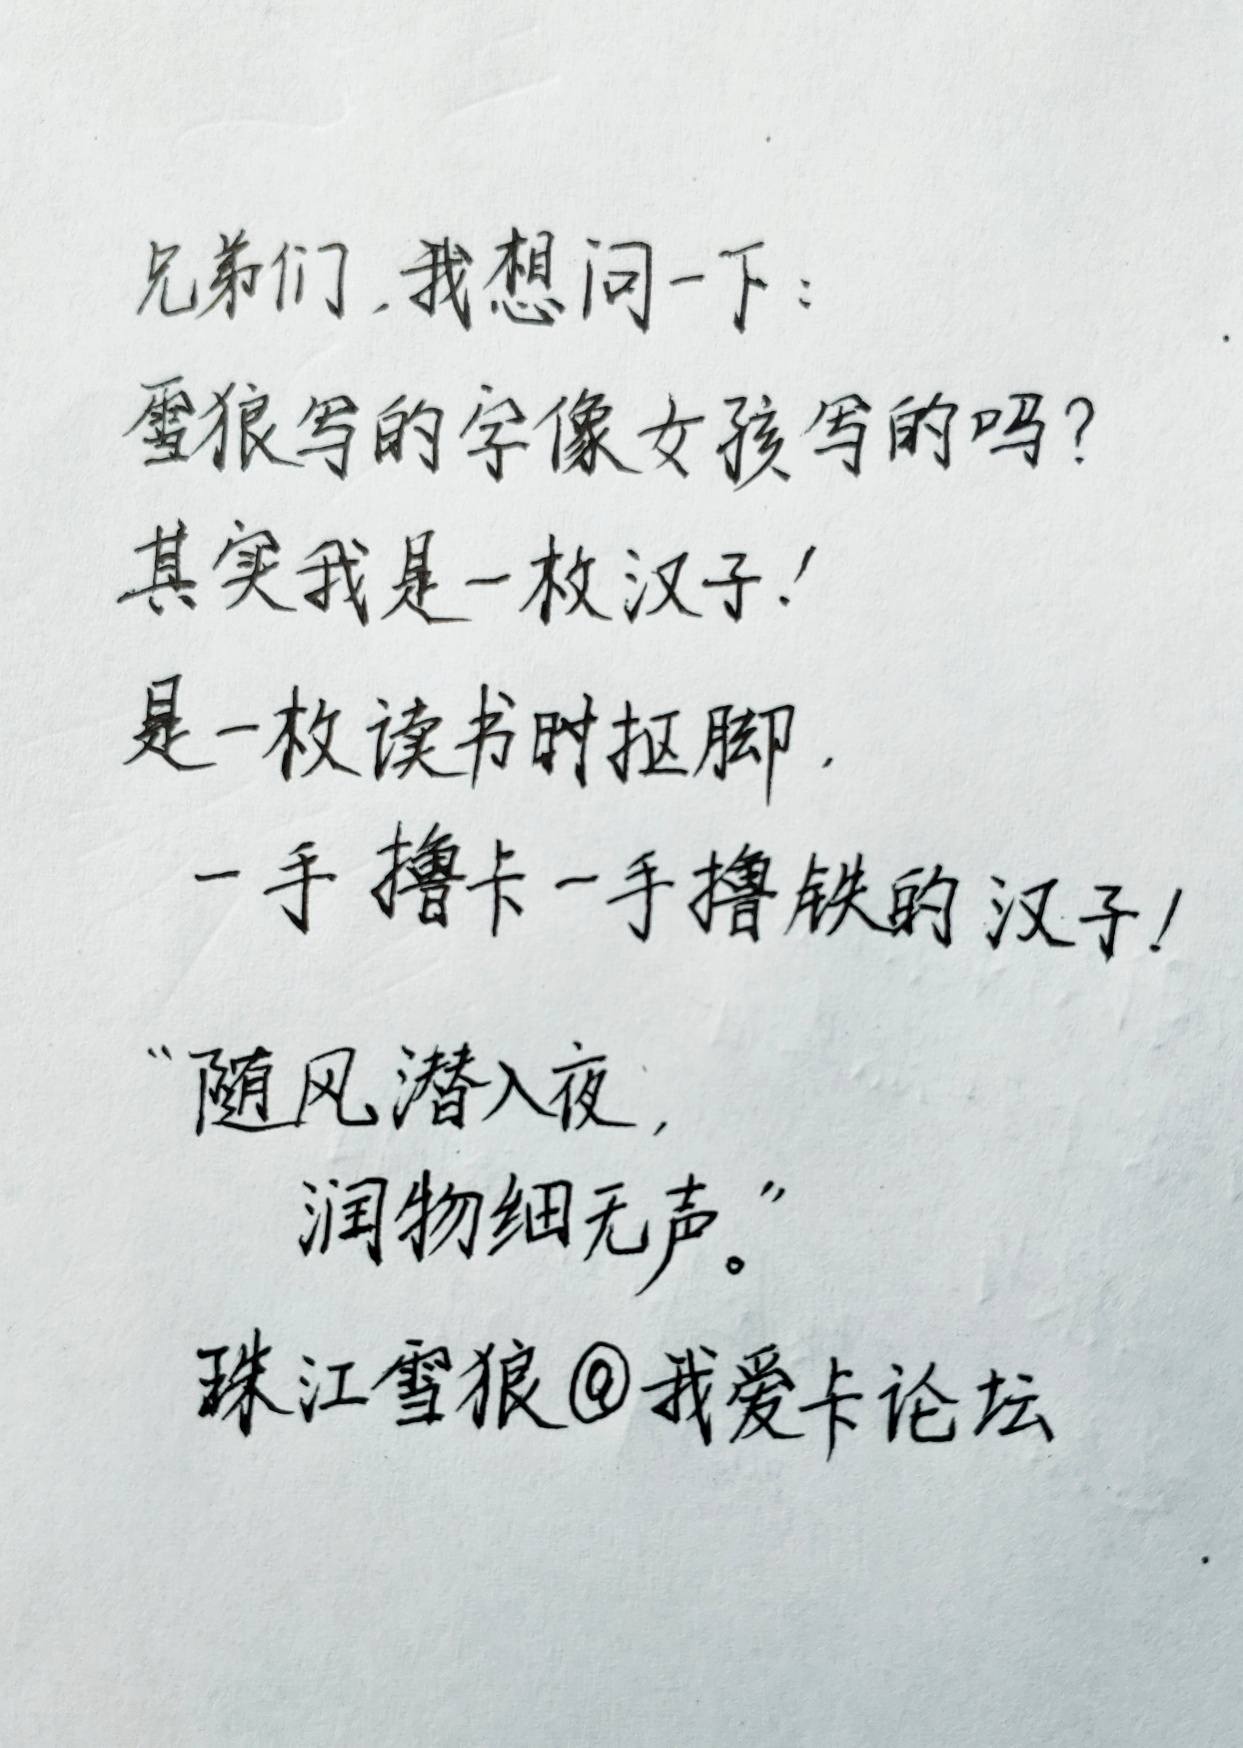 兄弟们，我想问一下：
雪狼写的字像女孩写的吗？
其实我是一枚汉子！
是一枚读书时抠脚，
一手撸卡一手撸铁的汉子！
“随风潜入夜，
润物细无声。”
珠江雪狼@我爱卡论坛